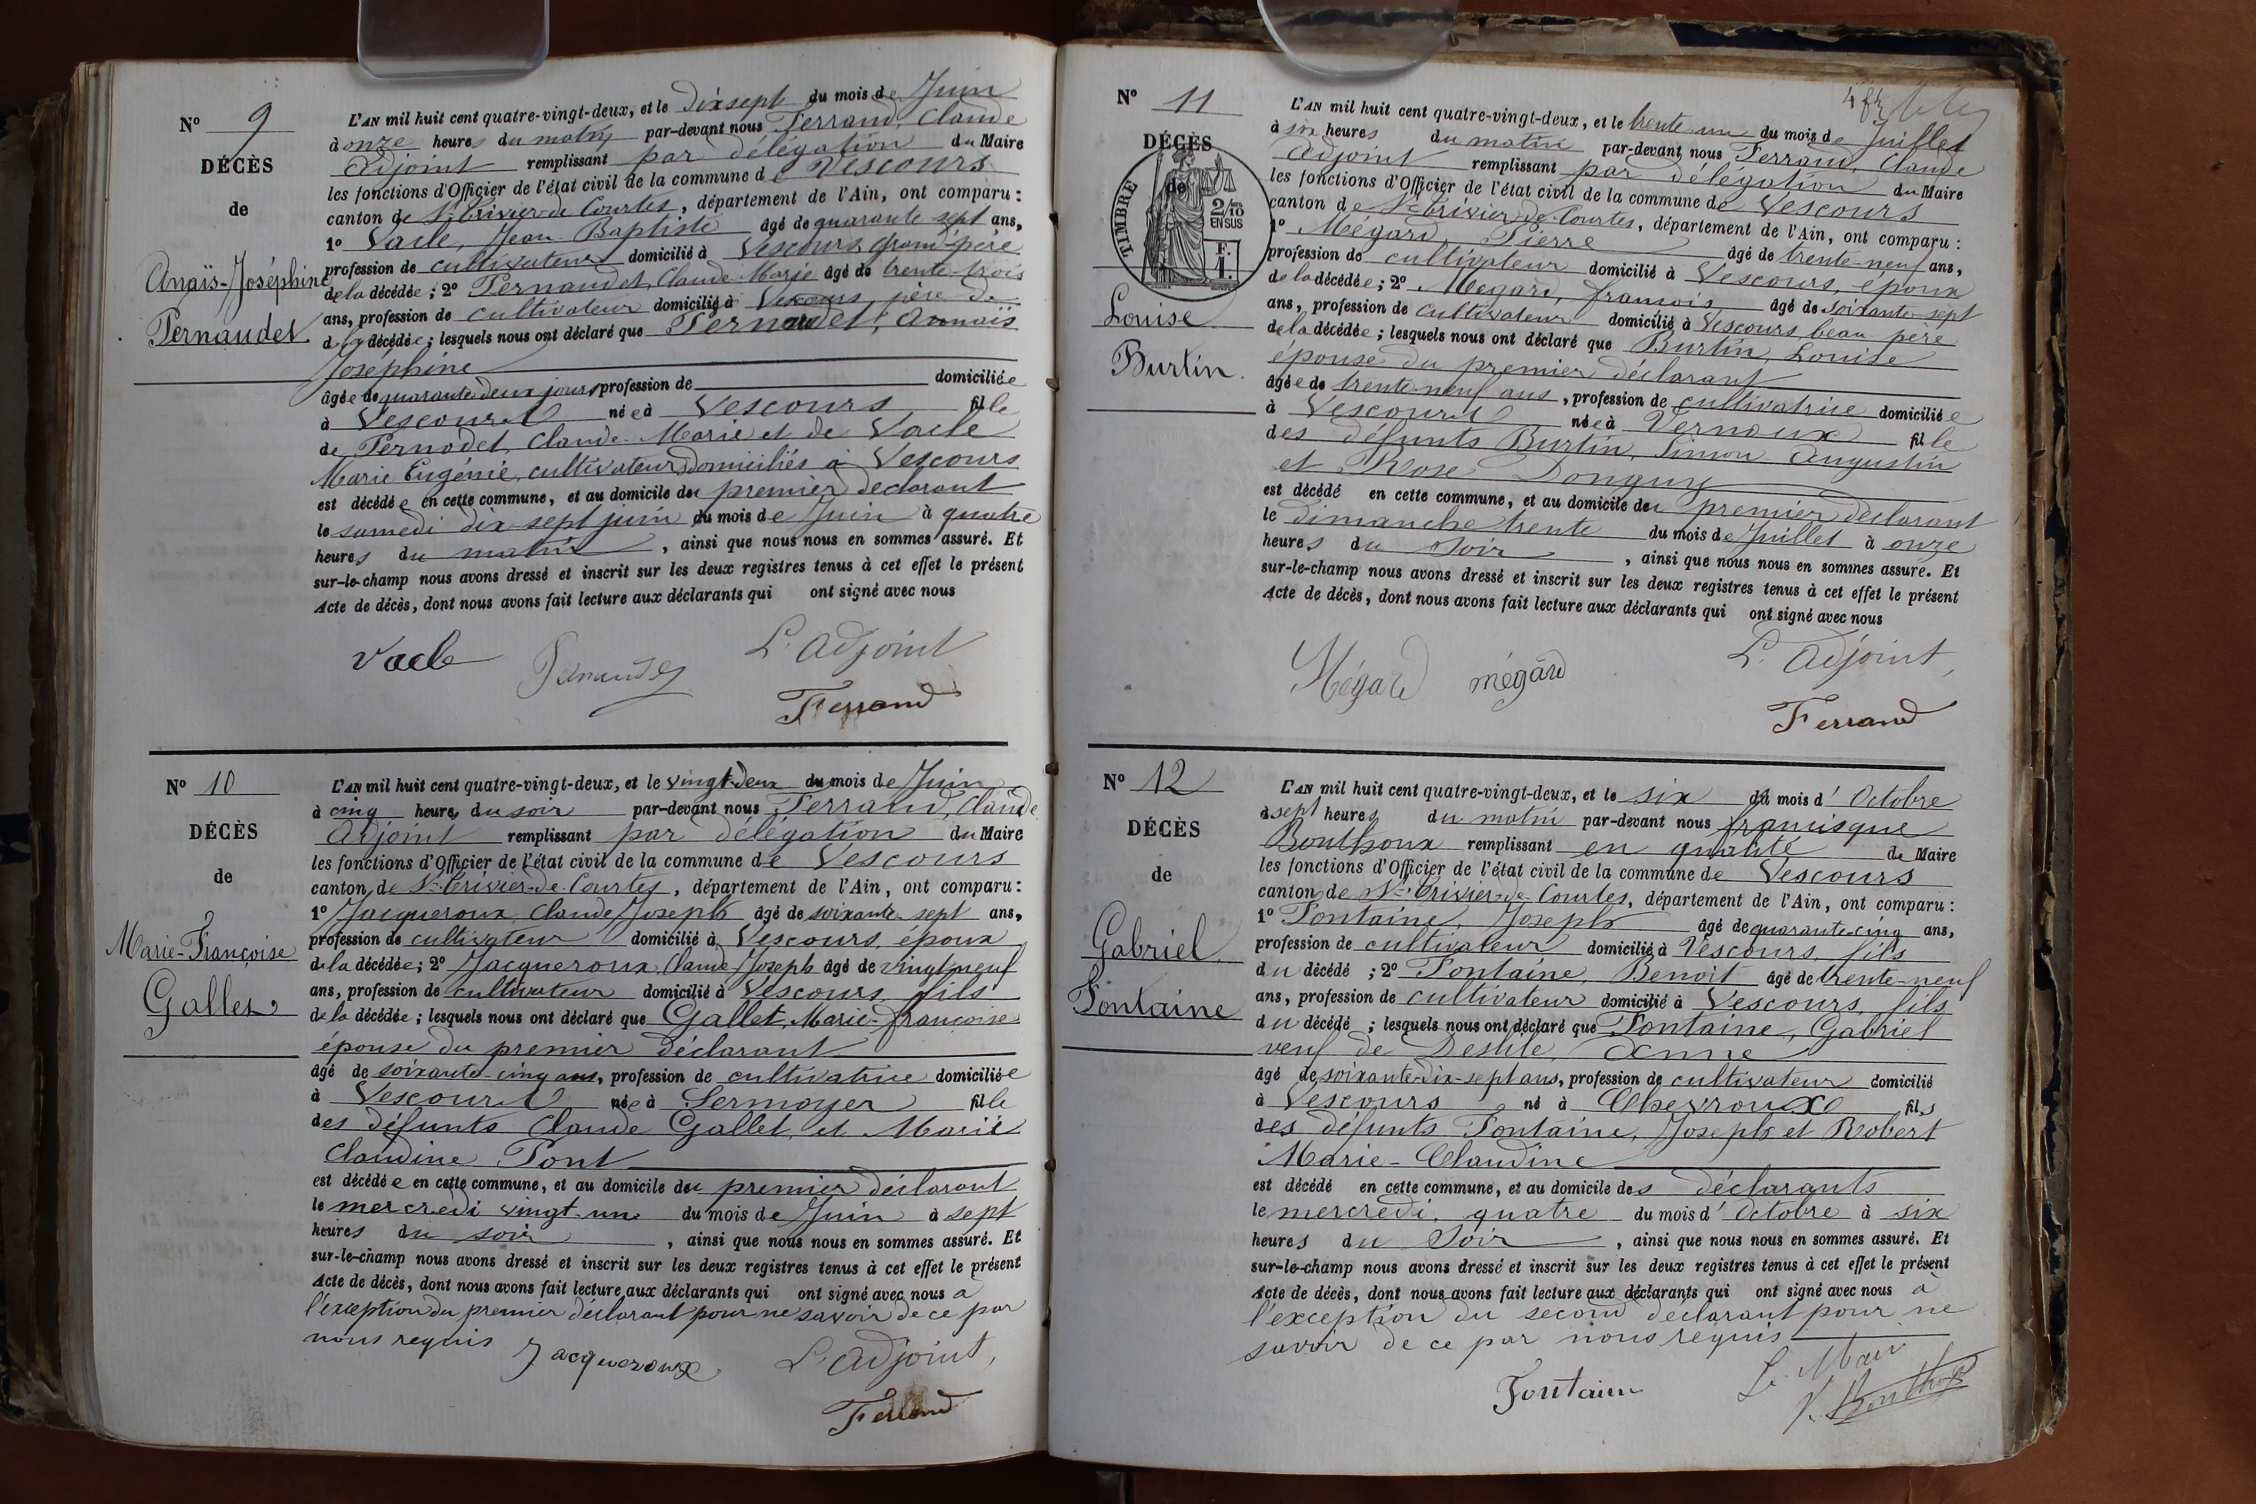 N° 9
DÉCÈS
de
Anaïs-Joséphine
Pernaudet
L'AN mil huit cent quatre-vingt-deux, et le dix sept du mois de Juin
à onze heures du matin par-devant nous Ferrand, Claude
adjoint remplissant par délégation du Maire
les fonctions d'Officier de l'état civil de la commune de Vescours
canton de St Trivier-de Courtes, département de l'Ain, ont comparu :
1° Vacle, Jean Baptiste âgé de quarante sept ans,
profession de cultivateur domicilié à Vescours, grand-père
de la décédée ; 2° Pernaudet, Claude-Marie âgé de trente-trois
ans, profession de cultivateur domicilié à Vescours, père de
la décédée ; lesquels nous ont déclaré que Pernaudet, Anaïs
Joséphine
âgée de quarante deux jours, profession de domiciliée
à Vescours née à Vescours fille
de Pernodet, Claude-Marie et de Vacle
Marie Eugénie, cultivateurs domiciliés à Vescours
est décédée en cette commune, et au domicile du premier déclarant
le samedi dix-sept juin du mois de Juin à quatre
heures du matin, ainsi que nous nous en sommes assuré. Et
sur-le-champ nous avons dressé et inscrit sur les deux registres tenus à cet effet le présent
Acte de décès, dont nous avons fait lecture aux déclarants qui ont signé avec nous
Vacle Pernaudet L'adjoint
Ferrand
N° 10
DÉCÈS
de
Marie-Françoise
Gallet
L'AN mil huit cent quatre-vingt-deux, et le vingt-deux du mois de Juin
à cinq heures du soir par-devant nous Ferrand, Claude
Adjoint remplissant par délégation du Maire
les fonctions d'Officier de l'état civil de la commune de Vescours
canton de St Trivier-de-Courtes, département de l'Ain, ont comparu :
1° Jacqueroux, Claude Joseph âgé de soixante-sept ans,
profession de cultivateur domicilié à Vescours, époux
de la décédée ; 2° Jacqueroux, Claude Joseph âgé de vingt neuf
ans, profession de cultivateur domicilié à Vescours, fils
de la décédée ; lesquels nous ont déclaré que Gallet, Marie-françoise
épouse du premier déclarant
âgé de soixante-cinq ans, profession de cultivatrice domiciliée
à Vescours née à Sermoyer fille
des défunts Claude Gallet, et Marie
Claudine Pont
est décédée en cette commune, et au domicile du premier déclarant
le mercredi vingt-un du mois de Juin à sept
heures du soir, ainsi que nous nous en sommes assuré. Et
sur-le-champ nous avons dressé et inscrit sur les deux registres tenus à cet effet le présent
Acte de décès, dont nous avons fait lecture aux déclarants qui ont signé avec nous à
l'exception du premier déclarant pour ne savoir de ce par
nous requis Jacqueroux L'adjoint,
Ferrand
N° 11
DÉCÈS
de
TIMBRE
2/10
EN SUS
F.
1.
Louise
Burtin.
L'AN mil huit cent quatre-vingt-deux, et le trente-un du mois de Juillet
à six heures du matin par-devant nous Ferrand, Claude
Adjoint remplissant par délégation du Maire
les fonctions d'Officier de l'état civil de la commune de Vescours
canton de St Trivier-de-Courtes, département de l'Ain, ont comparu :
1° Mégard, Pierre âgé de trente-neuf ans,
profession de cultivateur domicilié à Vescours, époux
de la décédée ; 2° Mégard, françois âgé de soixante-sept
ans, profession de cultivateur domicilié à Vescours beau père
de la décédée ; lesquels nous ont déclaré que Burtin, Louise
épouse du premier déclarant
âgée de trente-neuf ans, profession de cultivatrice domiciliée
à Vescours née à Vernoux fille
des défunts Burtin, Simon Augustin
et Rose Donguy
est décédé en cette commune, et au domicile du premier déclarant
le dimanche trente du mois de Juillet à onze
heures du soir, ainsi que nous nous en sommes assuré. Et
sur-le-champ nous avons dressé et inscrit sur les deux registres tenus à cet effet le présent
Acte de décès, dont nous avons fait lecture aux déclarants qui ont signé avec nous
Mégard mégard L'adjoint,
Ferrand
N° 12
DÉCÈS
de
Gabriel
Fontaine
L'AN mil huit cent quatre-vingt-deux, et le six du mois d'Octobre
à sept heures du matin par-devant nous francisque
Bouthoux remplissant en qualité de Maire
les fonctions d'Officier de l'état civil de la commune de Vescours
canton de St Trivier-de Courtes, département de l'Ain, ont comparu :
1° Fontaine, Joseph âgé de quarante-cinq ans,
profession de cultivateur domicilié à Vescours, fils
du décédé ; 2° Fontaine, Benoit âgé de trente-neuf
ans, profession de cultivateur domicilié à Vescours, fils
du décédé ; lesquels nous ont déclaré que Fontaine, Gabriel
veuf de Anne
âgé de soixante-dix-sept ans, profession de cultivateur domicilié
à Vescours né à Chevroux fils
des défunts Fontaine, Joseph et Robert
Marie-Claudine
est décédé en cette commune, et au domicile des déclarants
le mercredi quatre du mois d'Octobre à six
heures du soir, ainsi que nous nous en sommes assuré. Et
sur-le-champ nous avons dressé et inscrit sur les deux registres tenus à cet effet le présent
Acte de décès, dont nous avons fait lecture aux déclarants qui ont signé avec nous à
l'exception du second déclarant pour ne
savoir de ce par nous requis
Fontaine Le Maire
Bouthoux